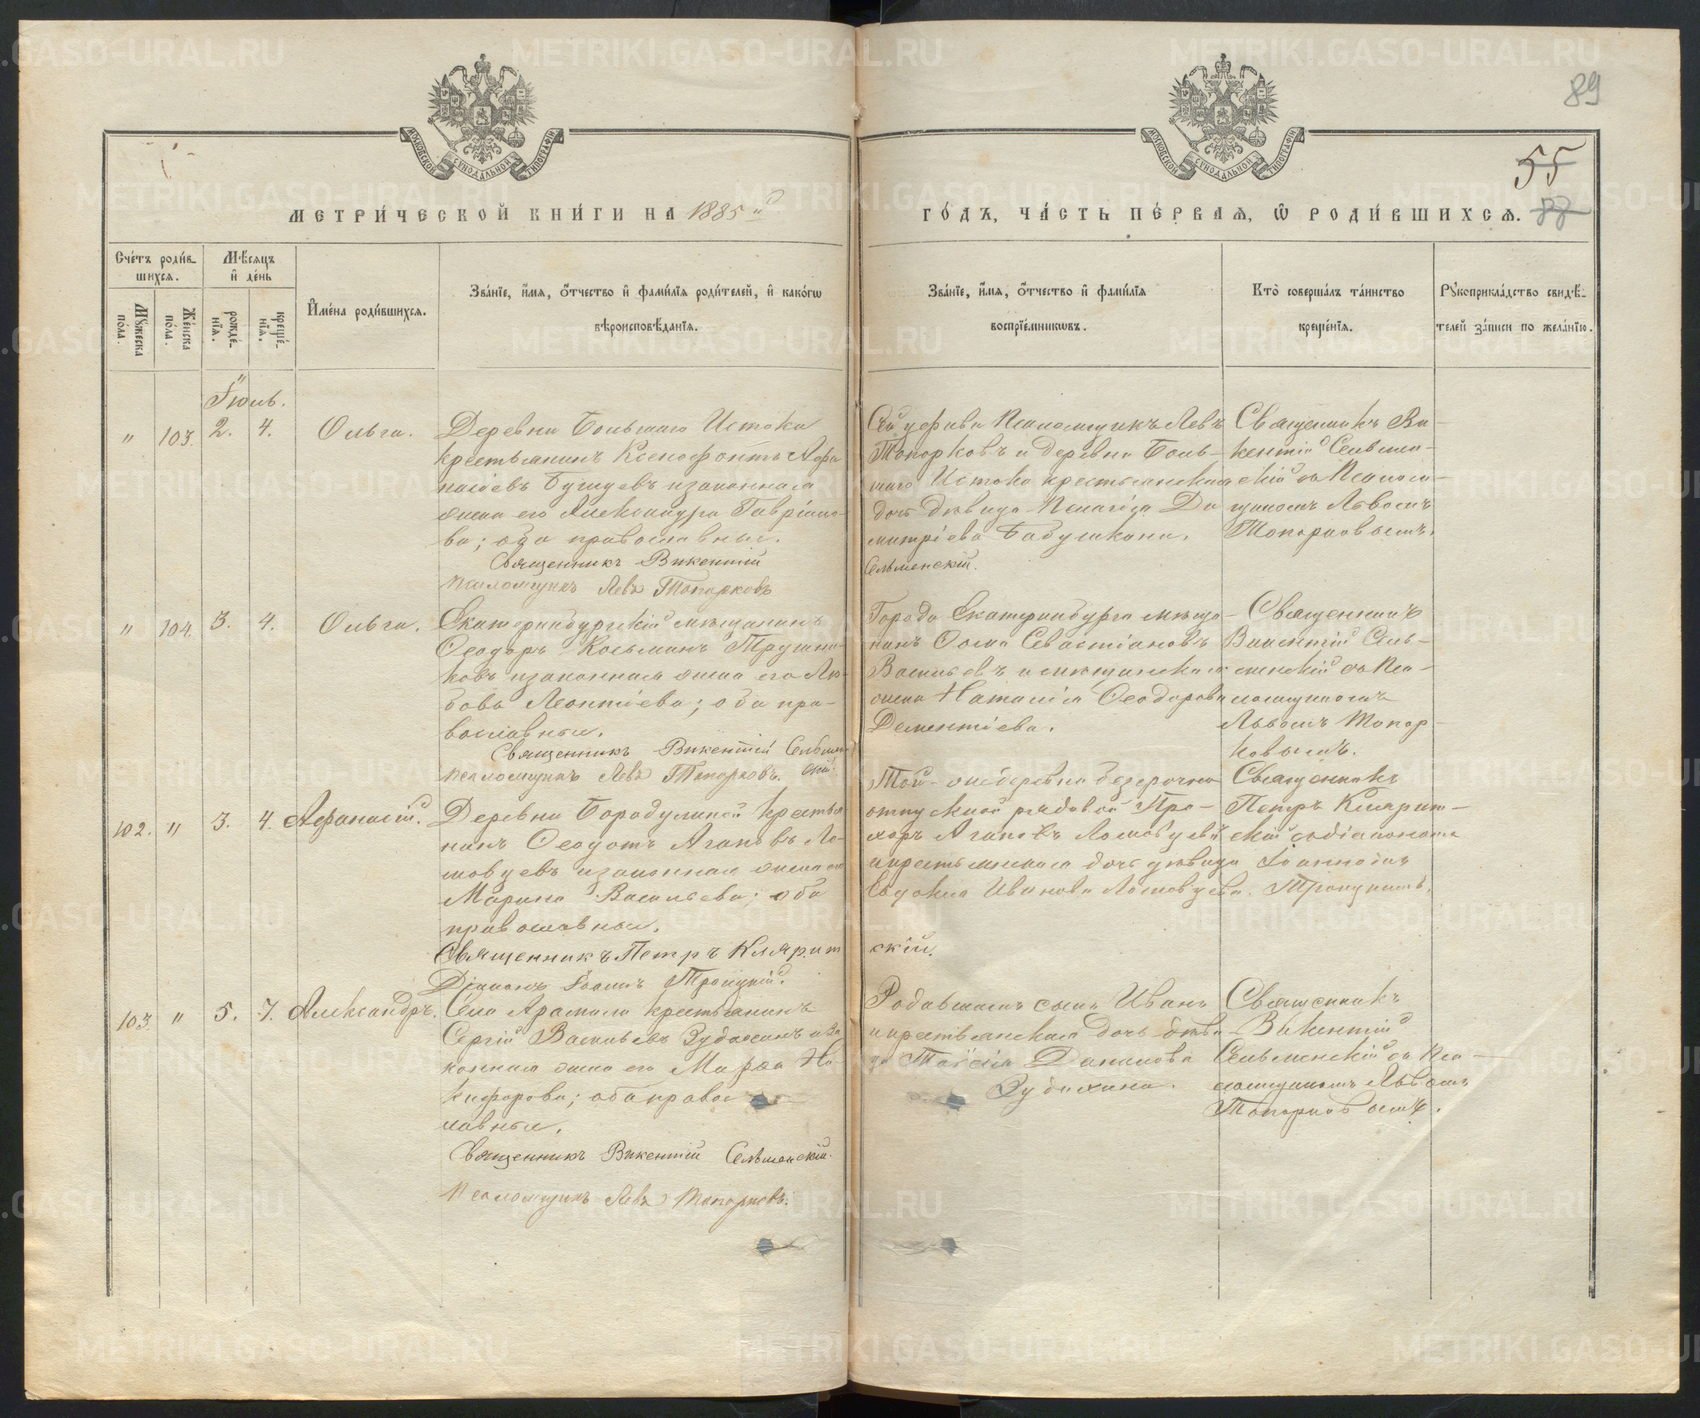 89
55
88
МЕТРИ́ЧЕСКОЙ КНИ́ГИ НА 1885й
ГО́ДЪ, ЧА́СТЬ ПЕ́РВАЯ, Ѡ҆ РОДИ́ВШИХСѦ.
Сче́тъ роди́в-
шихсѧ.
Мѣ́сѧцъ
и҆ де́нь
Мꙋ́жеска
по́ла.
Же́нска
по́ла.
рожде́-
нїѧ.
креще́-
нїѧ.
И҆мена̀ роди́вшихсѧ.
Зва́нїе, и҆́мѧ, ѻ҆́тчество и҆ фами́лїѧ роди́телей, и҆ како́гѡ
вѣроисповѣ́данїѧ.
Зва́нїе, и҆́мѧ, ѻ҆́тчество и҆ фами́лїѧ
воспрїе́мникѡвъ.
Кто̀ соверша́лъ та́инство
креще́нїѧ.
Рꙋкоприкла́дство свидѣ́-
телей за́писи по жела́нїю.
Іюль.
" 103. 2. 4. Ольга.
Деревни Большаго Истока
крестьянинъ Ксенофонтъ Афа
насіевъ Бушуевъ и законная
жена его Александра Гавріило-
ва; оба православные.
Священникъ Викентій
Псаломщикъ Левъ Топорковъ
Псаломщикъ Левъ
Топорковъ и деревни Боль-
шаго Истока крестьянская
дочь дѣвица Пелагія Ди
митріева Бабушкина.
Сельменскій.
Священникъ Ви-
кентій Сельмен-
скій съ Псалом-
щикомъ Львомъ
Топорковымъ.
" 104. 3. 4. Ольга.
Екатеринбургскій мѣщанинъ
Ѳеодоръ Козьминъ Трушни-
ковъ и законная жена его Лю-
бовь Леонтіева; оба пра-
вославные.
Священникъ Викентій Сельмен-
Псаломщикъ Левъ Топорковъ. скій.
Города Екатеринбурга мѣща-
нинъ Ѳома Севастіановъ
Васильевъ и мѣщанская
жена Наталія Ѳеодорова
Дементіева.
Священникъ
Викентій Сель-
менскій съ Пса-
ломщикомъ
Львомъ Топор-
ковымъ.
102. " 3. 4. Афанасій.
Деревни Бородулиной крестья
нинъ Ѳеодотъ Агаповъ Ло-
шовцевъ и законная жена его
Марина Васильева; оба
православные.
Священникъ Петръ Кляритъ
Діаконъ Іоаннъ Троицкій.
Той-же деревни безсрочно
отпускной рядовой Про-
хоръ Агаповъ
и крестьянская дочь дѣвица
Евдокія Иванова
скій.
Священникъ
Петръ Кляритъ-
скій съ діакономъ
Іоанномъ
Троицкимъ.
103. " 5. 7. Александръ.
Села Арамили крестьянинъ
Сергій Васильевъ Зудихинъ и за
конная жена его Марѳа Ни-
кифорова; оба правос
лавные.
Священникъ Викентій Сельменскій.
Псаломщикъ Левъ Топорковъ.
Родившаго сынъ Иванъ
и крестьянская дочь дѣви-
ца Таисія Данилова
Зудихина.
Священникъ
Викентій
Сельменскій съ Пса-
ломщикомъ Львомъ
Топорковымъ.